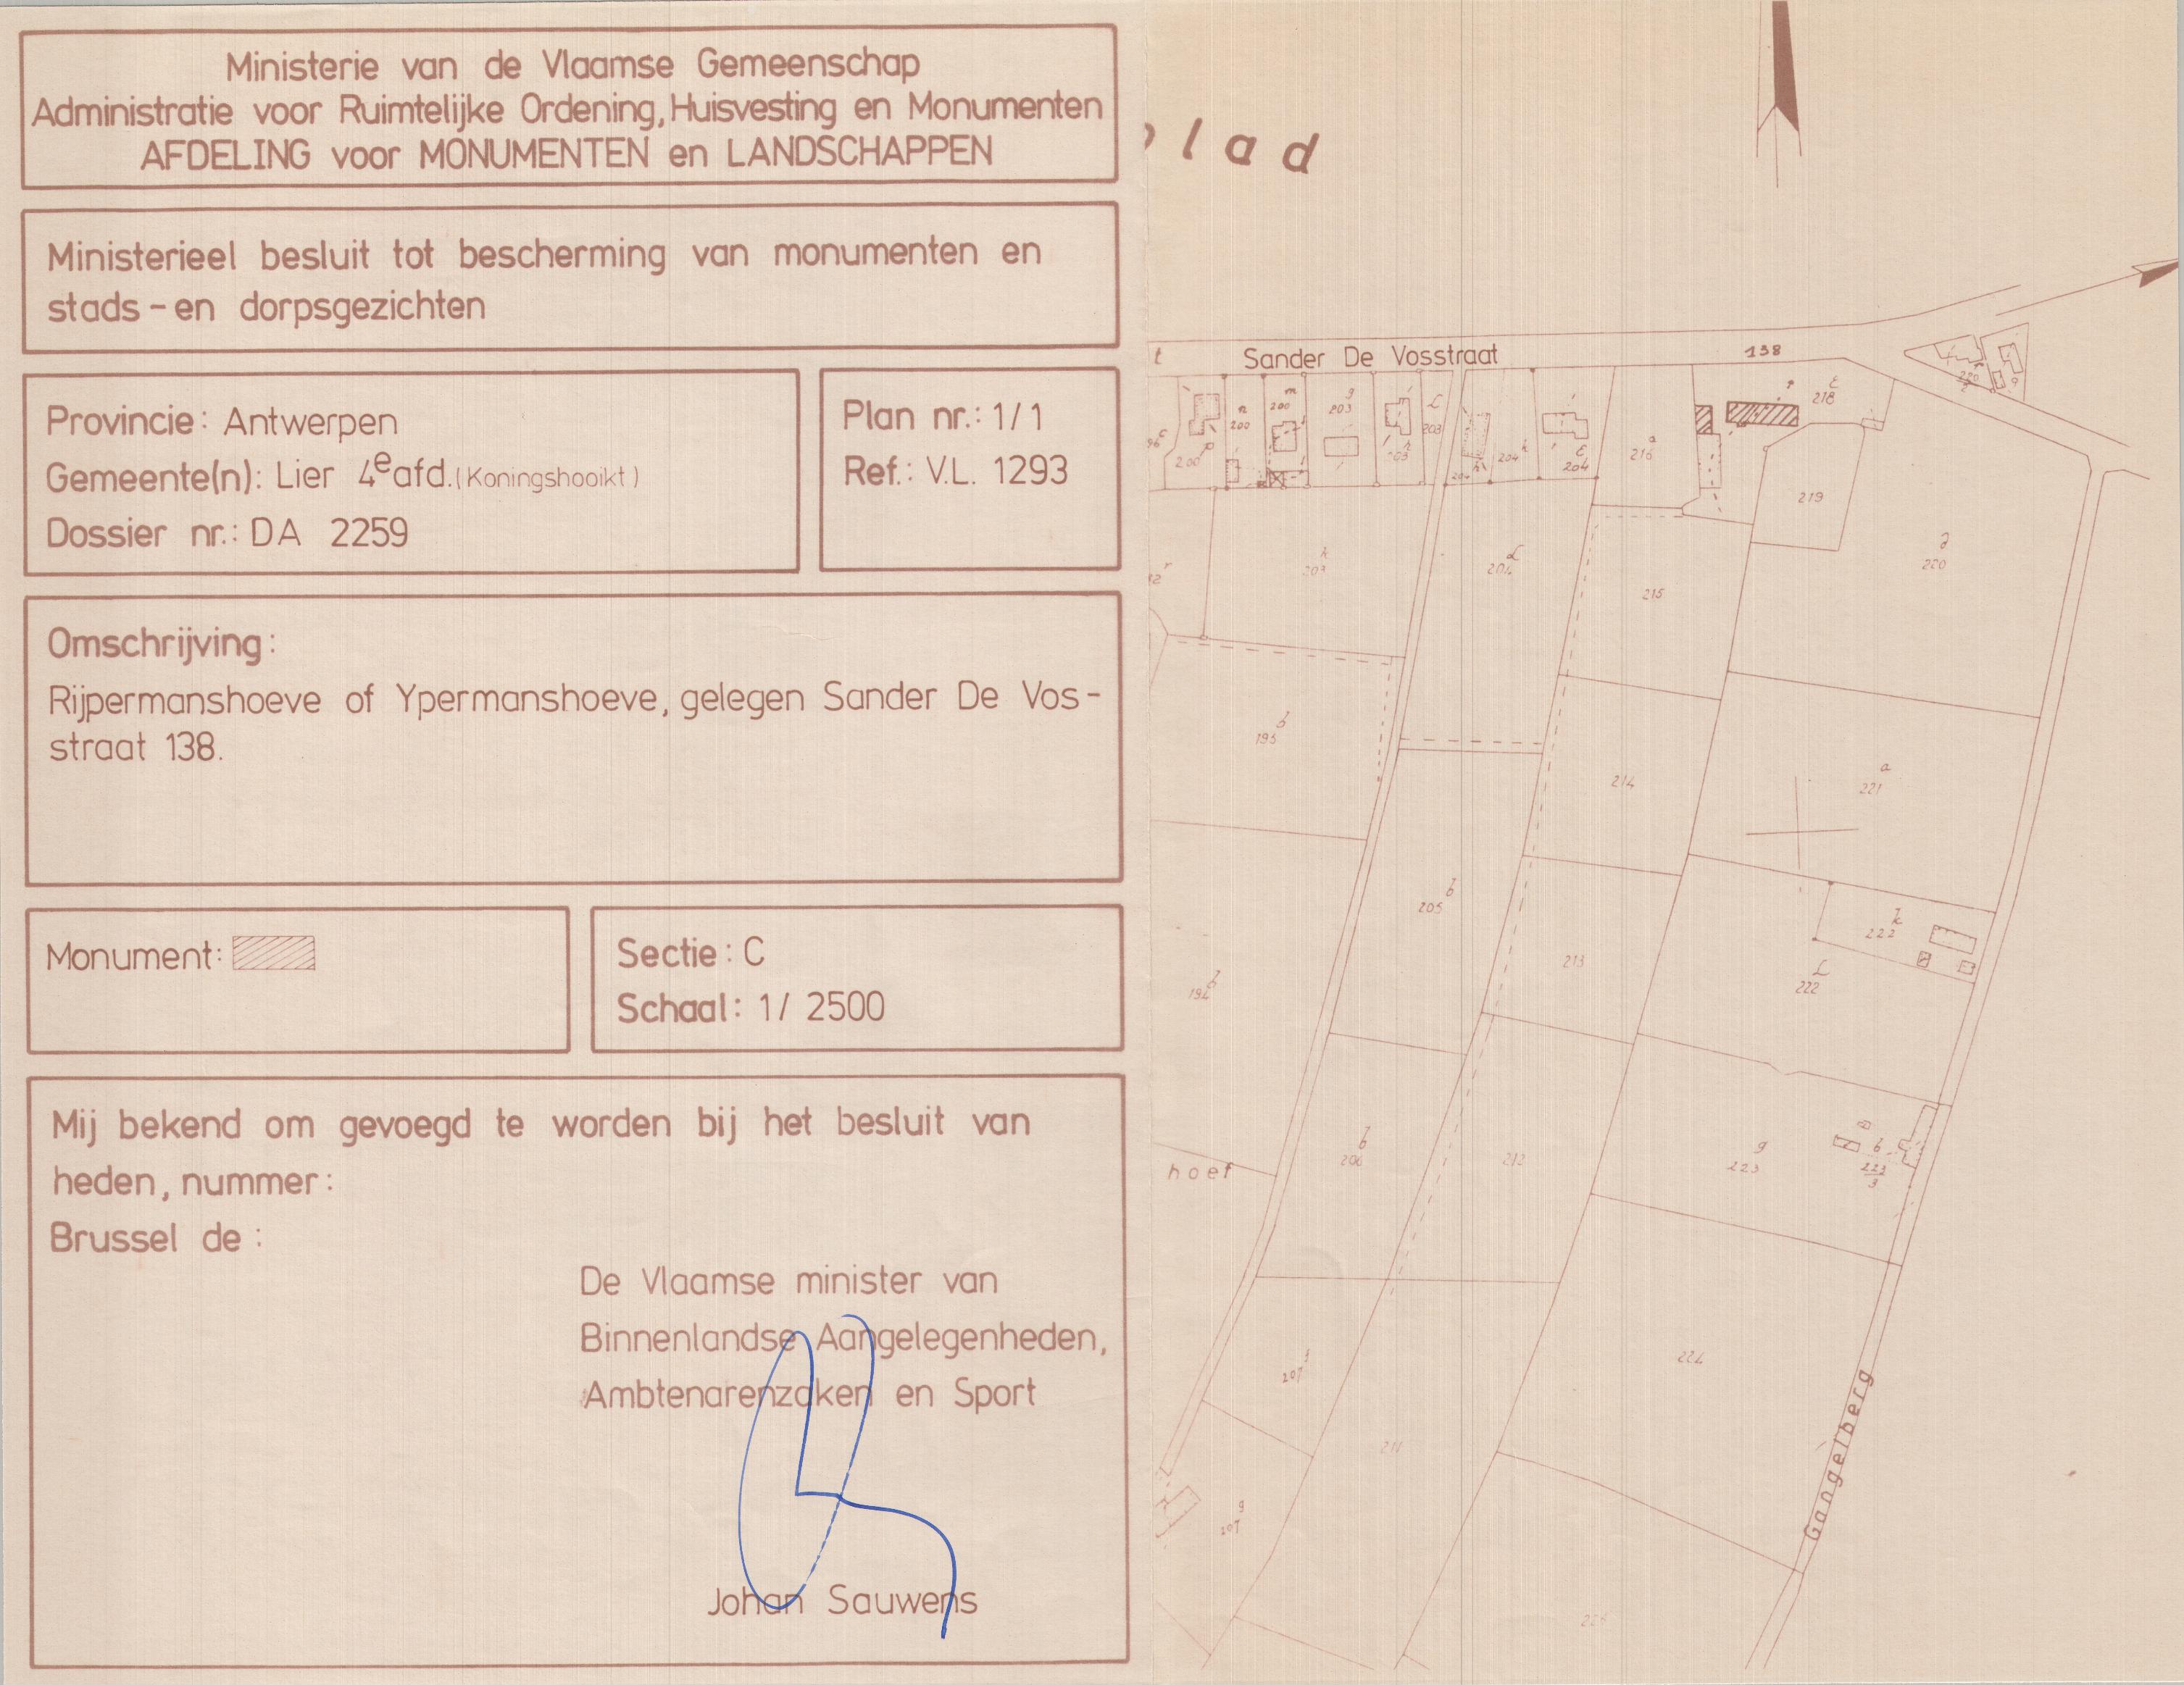 Ministerie van de Vlaamse Gemeenschap
Administratie voor Ruimtelijke Ordening, Huisvesting en Monumenten
AFDELING voor MONUMENTEN en LANDSCHAPPEN
Ministerieel besluit tot bescherming van monumenten en
stads-en dorpsgezichten
Provincie: Antwerpen
Gemeente(n): Lier 4e afd. (Koningshooikt)
Dossier nr.: DA 2259
Plan nr.: 1/1
Ref.: V.L. 1293
Omschrijving:
Rijpermanshoeve of Ypermanshoeve, gelegen Sander De Vos-
straat 138.
Monument:
Sectie: C
Schaal: 1/ 2500
Mij bekend om gevoegd te worden bij het besluit van
heden, nummer:
Brussel de:
De Vlaamse minister van
Binnenlandse Aangelegenheden,
Ambtenarenzaken en Sport
Johan Sauwens
lad
t
Sander De Vosstraat
138
n
200
m
200
g
203
203
204
a
216
218
219
220
215
214
a
221
b
205
213
k
222
222
b
206
212
g
223
b
223
3
hoef
224
g
207
211
Gangelberg